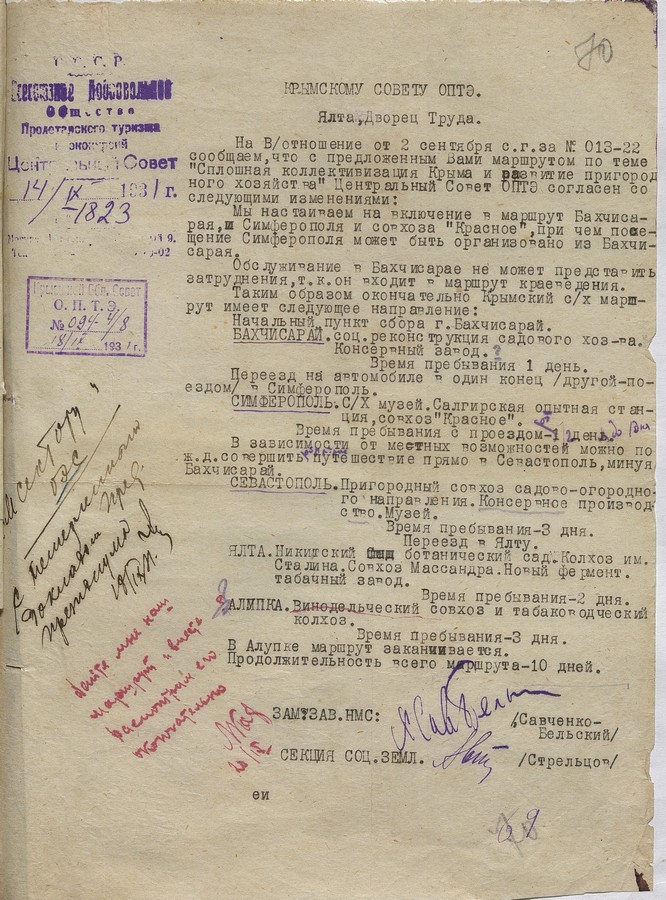 70
С.С.С.Р.
Всесоюзное Добровольное
Общество
Пролетарского туризма
и экскурсий
Центральный Совет
14/IX 1931 г.
1823
КРЫМСКОМУ СОВЕТУ ОПТЭ.
Ялта, Дворец Труда.
На В/отношение от 2 сентября с.г.за № 013-22
сообщаем,что с предложенным Вами маршрутом по теме
"Сплошная коллективизация Крыма и развитие пригород
ного хозяйства" Центральный Совет ОПТЭ согласен со
следующими изменениями:
Мы настаиваем на включение в маршрут Бахчиса-
рая, Симферополя и совхоза "Красное", при чем посе-
щение Симферополя может быть организовано из Бахчи-
сарая.
Обслуживание в Бахчисарае не может представить
затруднения,т.к.он входит в маршрут краеведения.
Таким образом окончательно Крымский с/х марш-
рут имеет следующее направление:
Начальный пункт сбора г.Бахчисарай.
БАХЧИСАРАЙ.соц.реконструкция садового хоз-ва.
Консервный завод.?
Время пребывания 1 день.
Переезд на автомобиле в один конец /другой-по-
ездом/ в Симферополь.
СИМФЕРОПОЛЬ.С/Х музей.Салгирская опытная стан-
ция,совхоз"Красное".
Время пребывания с проездом-1 день.
В зависимости от местных возможностей можно по
ж.д.совершить путешествие прямо в Севастополь,минуя
Бахчисарай.
СЕВАСТОПОЛЬ.Пригородный совхоз садово-огородно-
го направления.Консервное производ-
ство.Музей.
Время пребывания-3 дня.
Переезд в Ялту.
ЯЛТА.Никитский ботанический сад.Колхоз им.
Сталина.Совхоз Массандра.Новый фермент.
табачный завод.
Время пребывания-2 дня.
АЛУПКА.Винодельческий совхоз и табаководческий
колхоз.
Время пребывания-3 дня.
В Алупке маршрут заканчивается.
Продолжительность всего маршрута-10 дней.
ЗАМ?ЗАВ.НМС: /Савченко-
Бельский/
СЕКЦИЯ СОЦ.ЗЕМЛ. /Стрельцов/
еи
Крымский Обл. Совет
О.П.Т.Э.
№ 094-4/8
18/IX 1931г.
сектору
ОЭС
Дайте мне наш
маршрут и вместе
рассмотрим его
окончательно